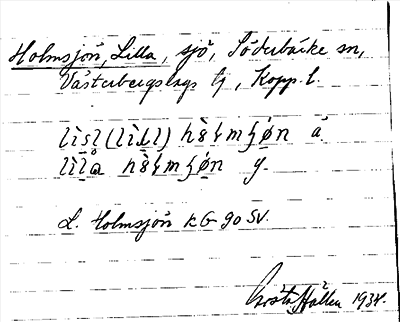 Holmsjön, Lilla, sjö, Söderbärke sn,
Västerbergslags tg, Kopp. l.
lìsl (lìLl) hò̀lmʃøn å.
lìlå hò̀lmʃøn y.
L. Holmsjön KG 90 SV.
Gösta Hallén 1934.